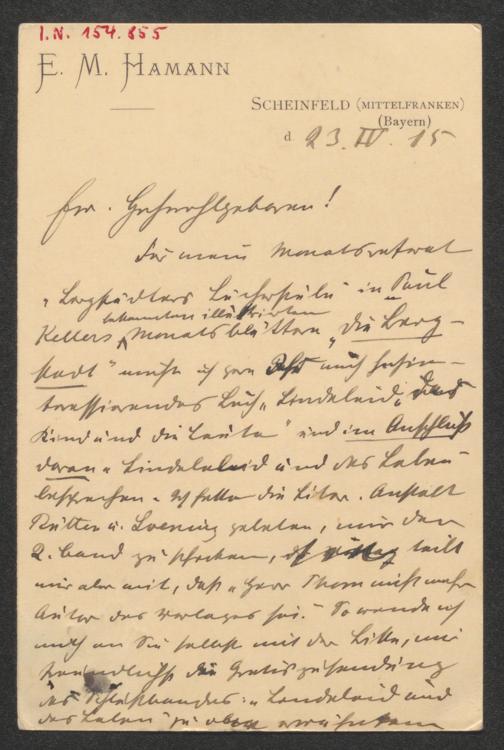 I.N. 154.855
E. M. HAMANN
SCHEINFELD (MITTELFRANKEN)
(Bayern)
d 23. IV. 15
Ew. Hochwohlgeboren!
Für mein Monatsreferat
„Bergstädters Bücherstube" in Paul
Kellers bekannten illustrierten Monatsblättern „Die Berg-
stadt" möchte ich gern Ihr mich sehr in-
teressierendes Buch „Lindeleid, das
Kind und die Leute" und im Anschluß
daran „Lindeleid und das Leben"
besprechen. Ich hatte die Liter. Anstalt
Rütten u. Loening gebeten, mir den
2. Band zu schicken, teilt
mir aber mit, daß „Herr Thom nicht mehr
Autor des Verlages sei." So wende ich
mich an Sie selbst mit der Bitte, mir
freundlichst die Gratiszusendung
des Schlußbandes: „Lindeleid und
das Leben" zu oben erwähntem